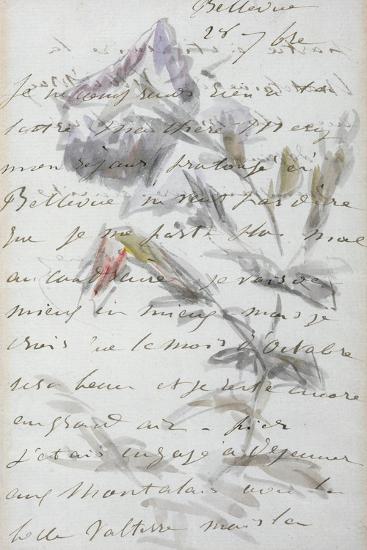 Bellevue
28 7bre
Je réponds bien à ta
lettre ma chère Méry
mon séjour prolongé ici
Bellevue ne veut pas dire
que je me porte plus mal
au contraire je vais de
mieux en mieux mais je
crois que le mois d'octobre
sera beau et je reste encore
en grand air - hier
j'étais engagé à déjeuner
aux Montalais avec la
belle Valtesse mais la